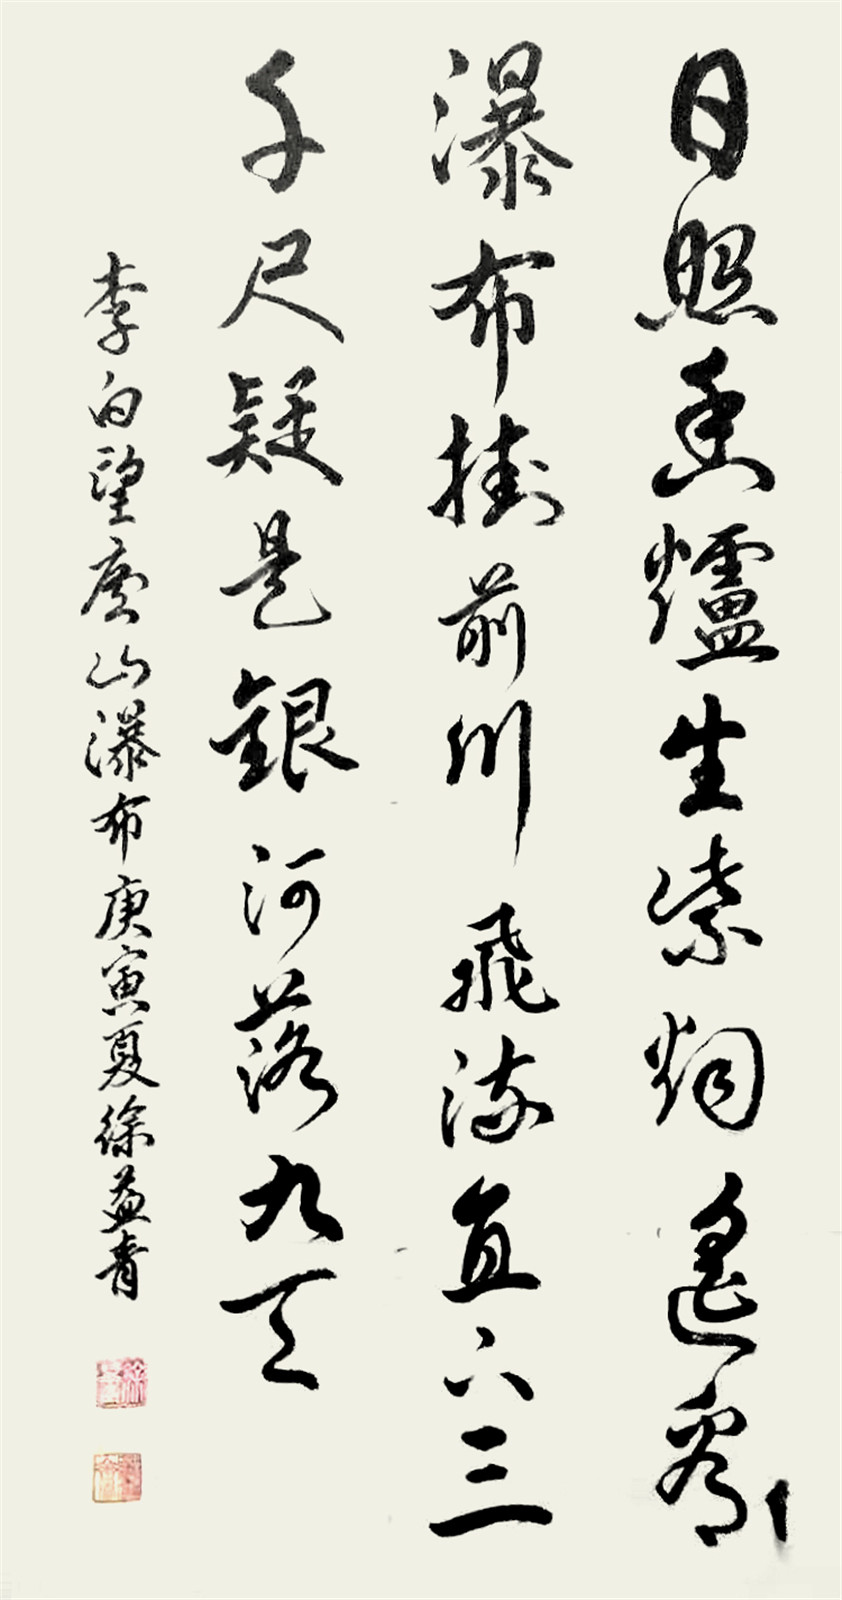 日照香爐生紫烟遙看
瀑布掛前川飛流直下三
千尺疑是銀河落九天
李白望廬山瀑布庚寅夏徐益青